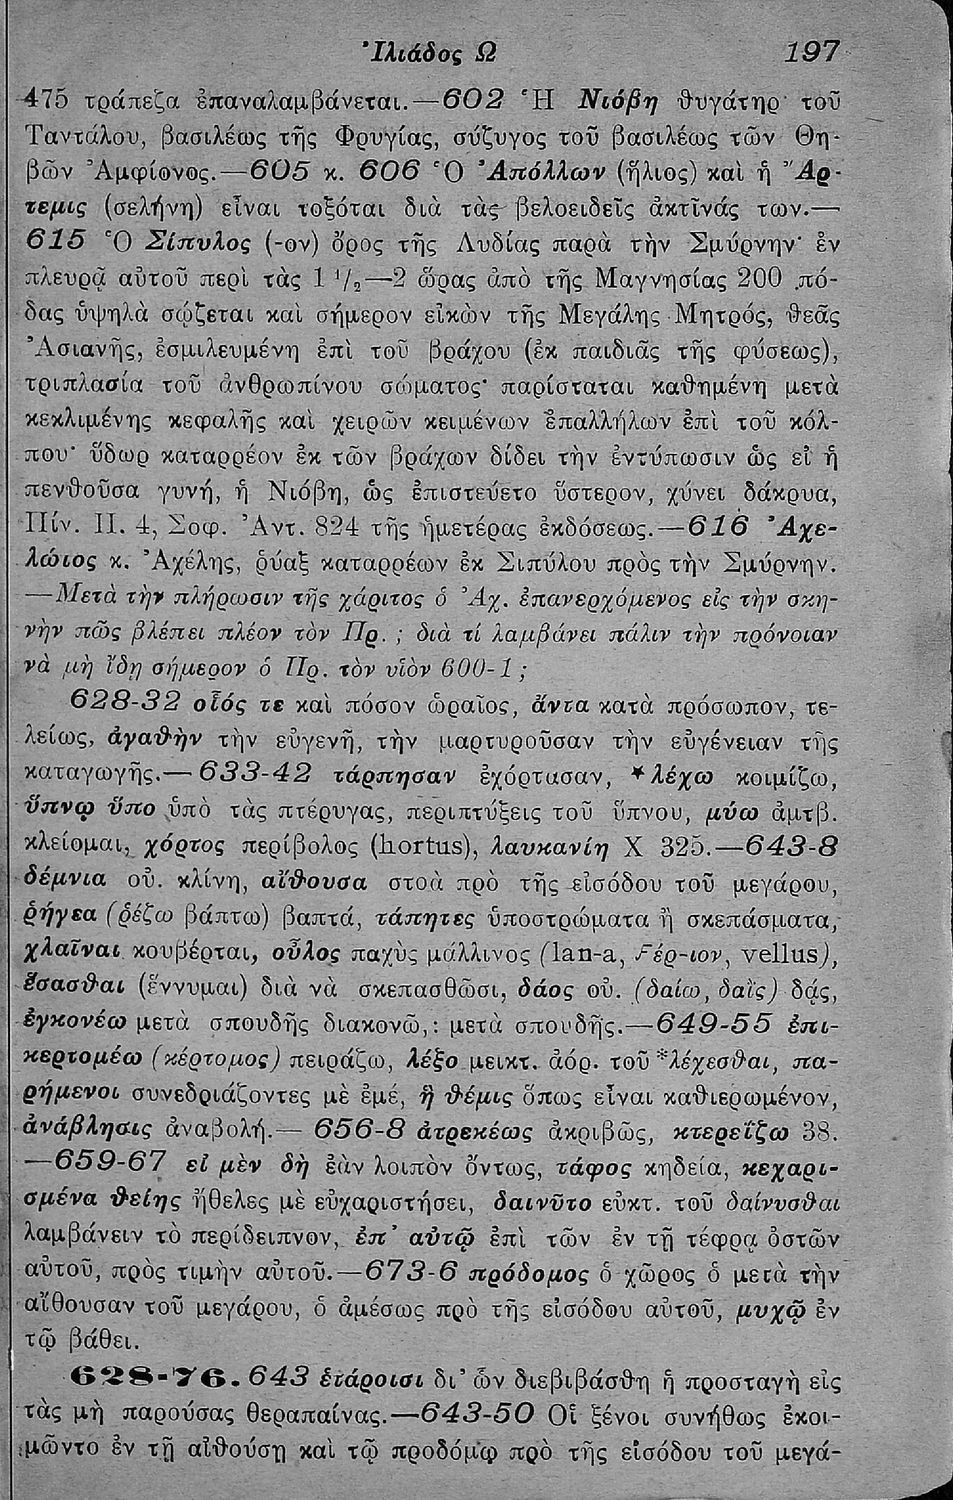 Ἰλιάδος Ω 197
475 τράπεζα ἐπαναλαμβάνεται.—602 Ἡ Νιόβη θυγάτηρ τοῦ
Ταντάλου, βασιλέως τῆς Φρυγίας, σύζυγος τοῦ βασιλέως τῶν Θη-
βῶν Ἀμφίονος.—605 κ. 606 Ὁ Ἀπόλλων (ἥλιος) καὶ ἡ Ἄρ-
τεμις (σελήνη) εἶναι τοξόται διὰ τὰς βελοειδεῖς ἀκτῖνάς των.—
615 Ὁ Σίπυλος (-ον) ὄρος τῆς Λυδίας παρὰ τὴν Σμύρνην· ἐν
πλευρᾷ αὐτοῦ περὶ τὰς 1 ¹/₂—2 ὥρας ἀπὸ τῆς Μαγνησίας 200 πό-
δας ὑψηλὰ σῴζεται καὶ σήμερον εἰκὼν τῆς Μεγάλης Μητρός, θεᾶς
Ἀσιανῆς, ἐσμιλευμένη ἐπὶ τοῦ βράχου (ἐκ παιδιᾶς τῆς φύσεως),
τριπλασία τοῦ ἀνθρωπίνου σώματος· παρίσταται καθημένη μετὰ
κεκλιμένης κεφαλῆς καὶ χειρῶν κειμένων ἐπαλλήλων ἐπὶ τοῦ κόλ-
που· ὕδωρ καταρρέον ἐκ τῶν βράχων δίδει τὴν ἐντύπωσιν ὡς εἰ ἡ
πενθοῦσα γυνή, ἡ Νιόβη, ὡς ἐπιστεύετο ὕστερον, χύνει δάκρυα,
Πίν. ΙΙ. 4, Σοφ. Ἀντ. 824 τῆς ἡμετέρας ἐκδόσεως.—616 Ἀχε-
λώιος κ. Ἀχέλης, ῥύαξ καταρρέων ἐκ Σιπύλου πρὸς τὴν Σμύρνην.
—Μετὰ τὴν πλήρωσιν τῆς χάριτος ὁ Ἀχ. ἐπανερχόμενος εἰς τὴν σκη-
νὴν πῶς βλέπει πλέον τὸν Πρ. ; διὰ τί λαμβάνει πάλιν τὴν πρόνοιαν
νὰ μὴ ἴδῃ σήμερον ὁ Πρ. τὸν υἱὸν 600-1 ;
628-32 οἷός τε καὶ πόσον ὡραῖος, ἄντα κατὰ πρόσωπον, τε-
λείως, ἀγαθὴν τὴν εὐγενῆ, τὴν μαρτυροῦσαν τὴν εὐγένειαν τῆς
καταγωγῆς.—633-42 τάρπησαν ἐχόρτασαν, *λέχω κοιμίζω,
ὕπνῳ ὕπο ὑπὸ τὰς πτέρυγας, περιπτύξεις τοῦ ὕπνου, μύω ἀμτβ.
κλείομαι, χόρτος περίβολος (hortus), λαυκανίη Χ 325.—643-8
δέμνια οὐ. κλίνη, αἴθουσα στοὰ πρὸ τῆς εἰσόδου τοῦ μεγάρου,
ῥήγεα (ῥέζω βάπτω) βαπτά, τάπητες ὑποστρώματα ἢ σκεπάσματα,
χλαῖναι κουβέρται, οὖλος παχὺς μάλλινος (lan-a, Ϝέρ-ιον, vellus),
ἕσασθαι (ἕννυμαι) διὰ νὰ σκεπασθῶσι, δάος οὐ. (δαίω, δαῒς) δᾴς,
ἐγκονέω μετὰ σπουδῆς διακονῶ,: μετὰ σπουδῆς.—649-55 ἐπι-
κερτομέω (κέρτομος) πειράζω, λέξο μεικτ. ἀόρ. τοῦ *λέχεσθαι, πα-
ρήμενοι συνεδριάζοντες μὲ ἐμέ, ἣ θέμις ὅπως εἶναι καθιερωμένον,
ἀνάβλησις ἀναβολή.— 656-8 ἀτρεκέως ἀκριβῶς, κτερεΐζω 38.
—659-67 εἰ μὲν δὴ ἐὰν λοιπὸν ὄντως, τάφος κηδεία, κεχαρι-
σμένα θείης ἤθελες μὲ εὐχαριστήσει, δαινῦτο εὐκτ. τοῦ δαίνυσθαι
λαμβάνειν τὸ περίδειπνον, ἐπ' αὐτῷ ἐπὶ τῶν ἐν τῇ τέφρᾳ ὀστῶν
αὐτοῦ, πρὸς τιμὴν αὐτοῦ.—673-6 πρόδομος ὁ χῶρος ὁ μετὰ τὴν
αἴθουσαν τοῦ μεγάρου, ὁ ἀμέσως πρὸ τῆς εἰσόδου αὐτοῦ, μυχῷ ἐν
τῷ βάθει.
628-76. 643 ἑτάροισι δι' ὧν διεβιβάσθη ἡ προσταγὴ εἰς
τὰς μὴ παρούσας θεραπαίνας.—643-50 Οἱ ξένοι συνήθως ἐκοι-
μῶντο ἐν τῇ αἰθούσῃ καὶ τῷ προδόμῳ πρὸ τῆς εἰσόδου τοῦ μεγά-